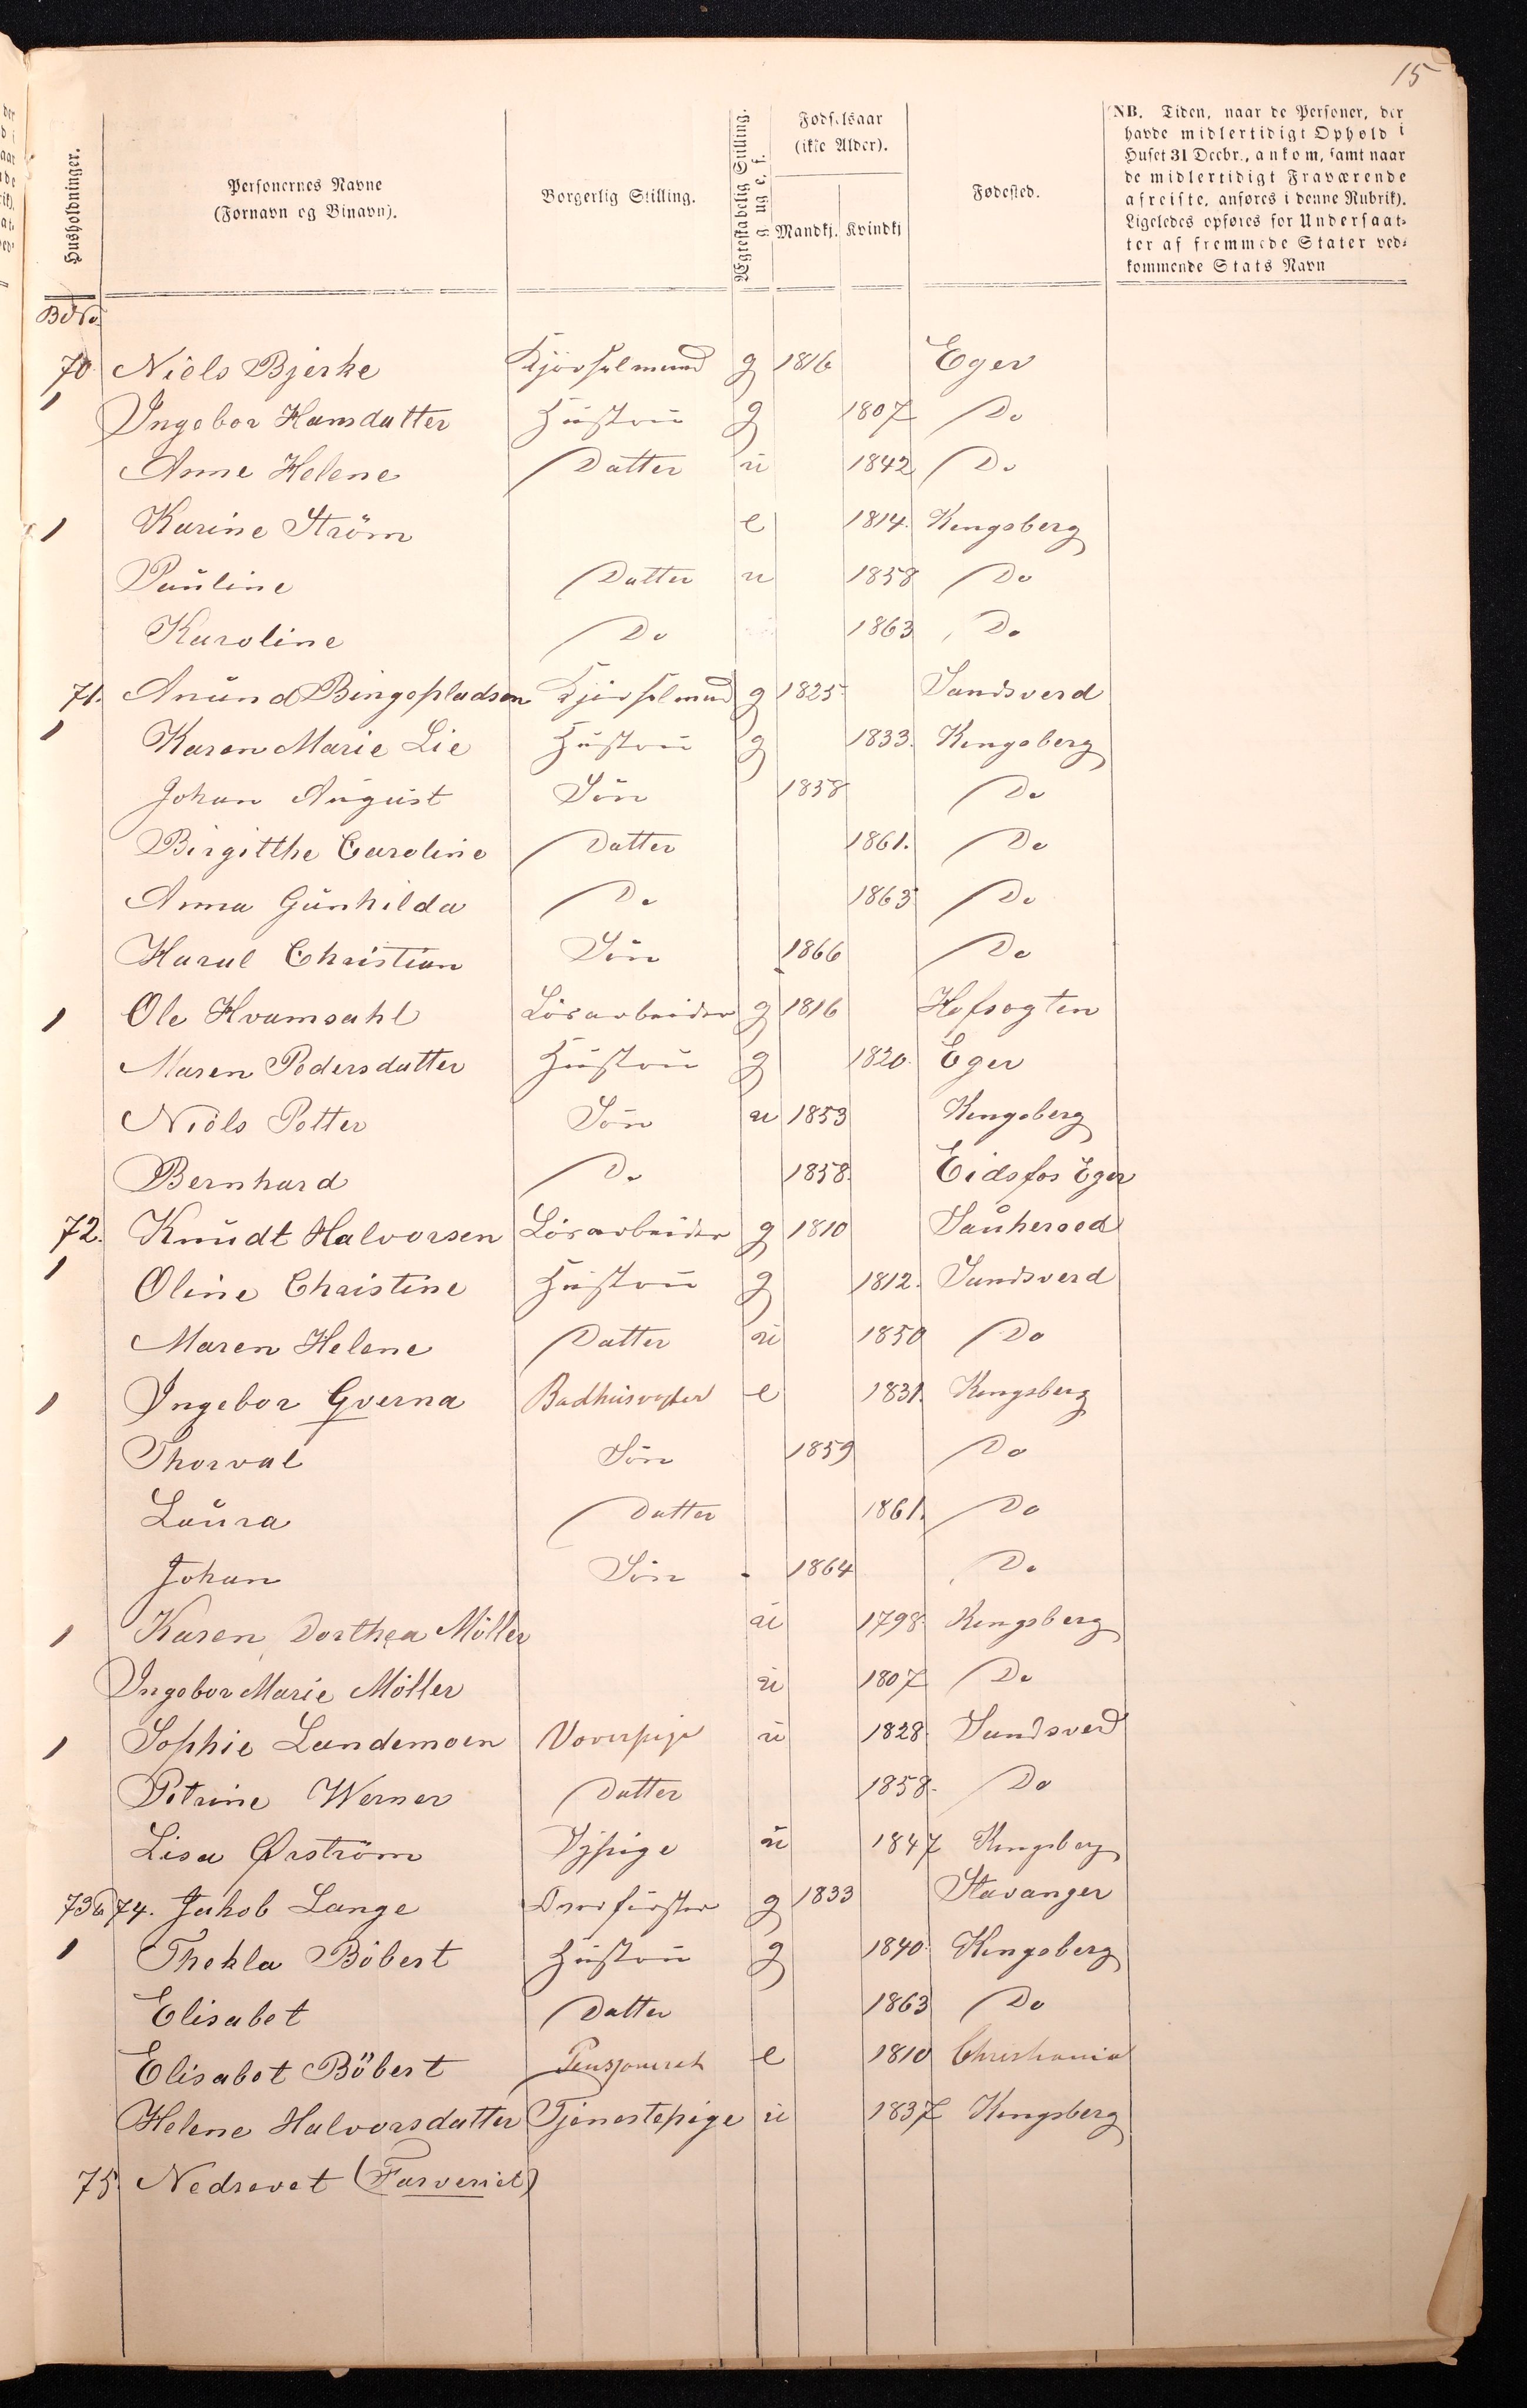 15
Husholdninger.
Personernes Navne
(Fornavn og Binavn).
Borgerlig Stilling.
Ægteskabelig Stilling.
g. ug e. f.
Fødselsaar
(ikke Alder).
Mandkj. Kvindkj
Fødested.
NB. Tiden, naar de Personer, der
havde midlertidigt Ophold i
Huset 31 Decbr., ankom, samt naar
de midlertidigt Fraværende
afreiste, anføres i denne Rubrik).
Ligeledes opføres for Undersaat-
ter af fremmede Stater ved-
kommende Stats Navn
70 Niels Bjerke Kjørselmand g 1816 Eger
1 Ingebor Hansdatter Hustru g 1807 Do
Anne Helene Datter u 1842 Do
1 Karine Ström e 1814. Kongsberg
Pauline Datter u 1858 Do
Karoline Do 1863 Do
71. Anund Bingspladsen Kjørselmand g 1825 Sandsverd
1 Karen Marie Lie Hustru g 1833. Kongsberg
Johan August Sön 1858 Do
Birgitthe Caroline Datter 1861. Do
Anna Gunhilda Do 1863 Do
Haral Christian Sön 1866 Do
1 Ole Kvamsahl Lösarbeider g 1816 Hofsogten
Maren Pedersdatter Hustru g 1820. Eger
Niels Petter Sön u 1853 Kongsberg
Bernhard Do 1858. Eidsfos Eger
72. Knudt Halvorsen Lösarbeider g 1810 Sauherred
1 Oline Christine Hustru g 1812. Sandsverd
Maren Helene Datter u 1850 Do
1 Ingebor Gverna Badhusvogter e 1831. Kongsberg
Thorval Sön 1859 Do
Laura Datter 1861. Do
Johan Sön - 1864 Do
1 Karen Dorthea Möller u 1798. Kongsberg
Ingebor Marie Möller u 1807 Do
1 Sophie Landemoen Væverpige u 1828. Sandsverd
Petrine Werner Datter 1858. Do
Lisa Ørström Sypige u 1847 Kongsberg
73 & 74. Jakob Lange Overförster g 1833 Stavanger
1 Thekla Böbert Hustru g 1840. Kongsberg
Elisabet Datter 1863 Do
Elisabet Böbert Pensjoneret e 1810 Christiania
Helene Halvorsdatter Tjenestepige u 1837 Kongsberg
75 Nedrevet (Farveriet)